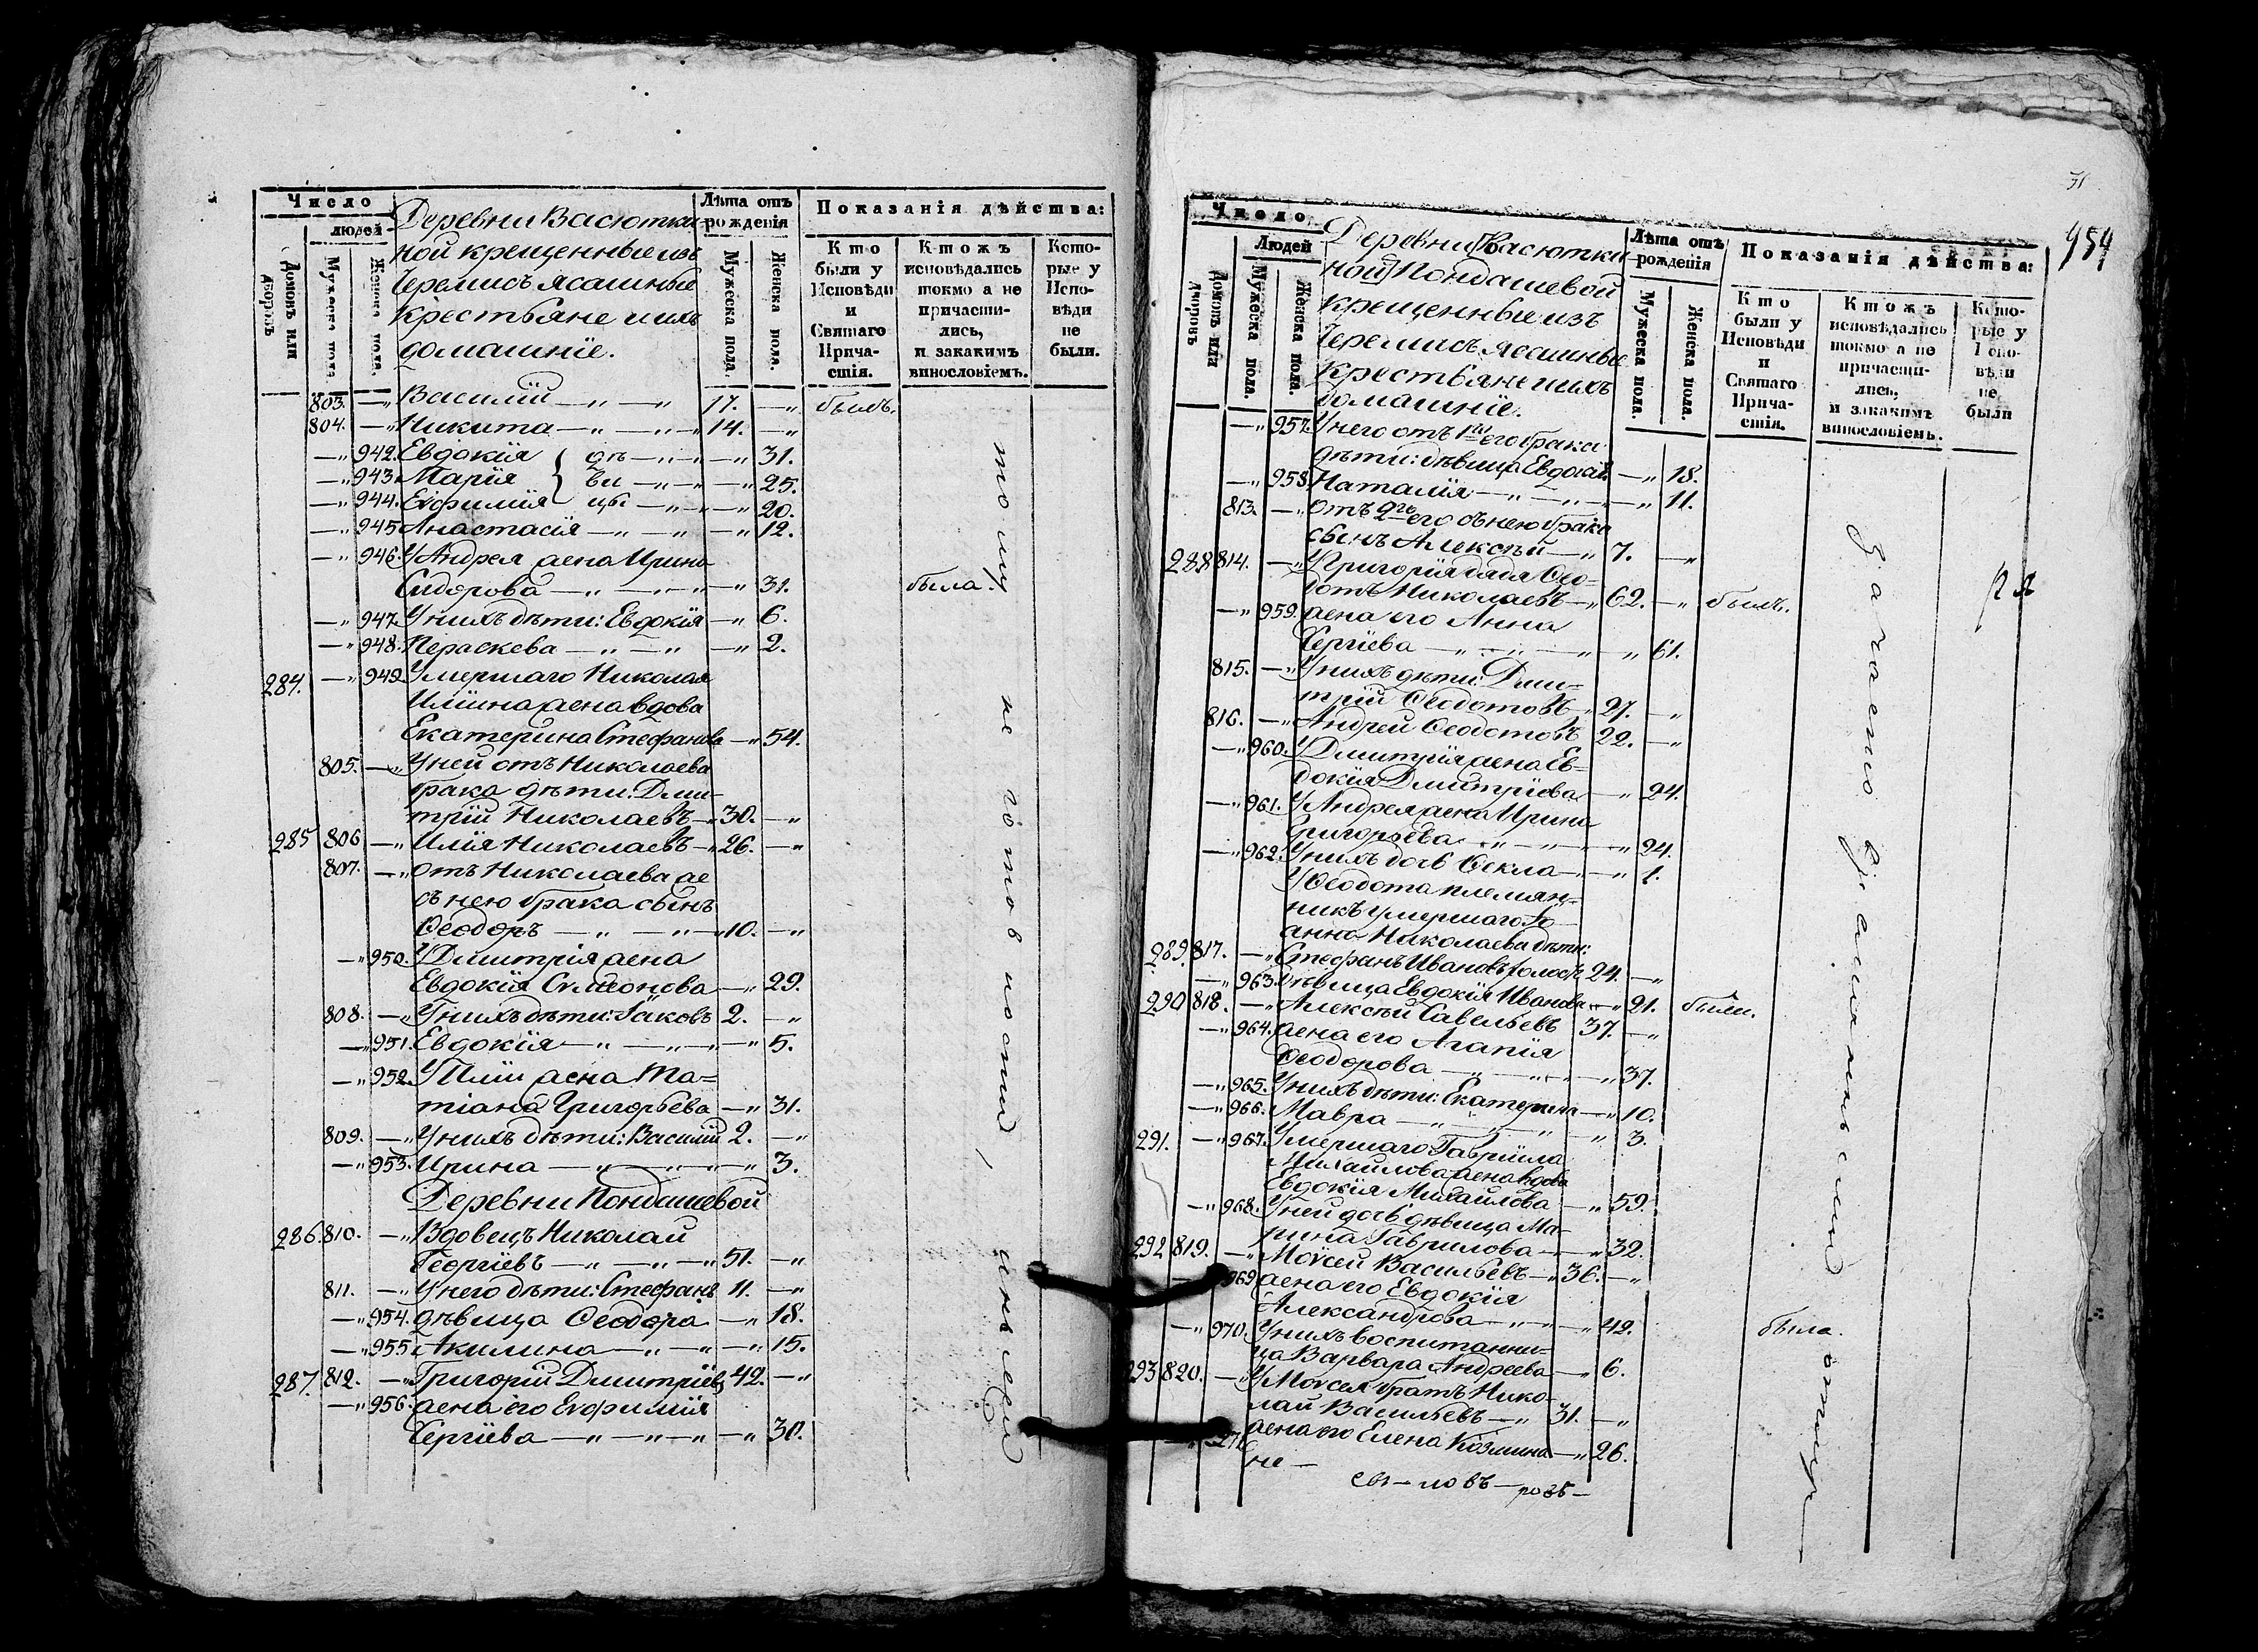 Число
людей
Домовъ или дворовъ
Мужеска пола.
Женска пола.
Деревни Васютки-
ной крещенные изъ
Черемисъ ясашные
крестьяне и ихъ
домашніе.
Лѣта отъ рожденія
Мужеска пола.
Женска пола.
Показанія дѣйства:
Кто были у Исповѣди и Святаго Прича-стія.
Ктожъ исповѣдались токмо а не причасти-лись, и закакимъ винословіемъ.
Кото-рые у Испо-вѣди не были.
803. —„ Василій —„ —„ 17. —„ былъ.
804. —„ Никита —„ —„ 14. —„
—„ 942. Евдокія дѣ —„ —„ 31.
—„ 943. Марія ви —„ —„ 25.
—„ 944. Евфимія цы —„ —„ 20.
—„ 945 Анастасія —„ —„ —„ 12.
—„ 946. У Андрея жена Ирина
Сидорова —„ —„ —„ 31. была.
—„ 947. У нихъ дѣти: Евдокія —„ 6.
—„ 948. Параскева —„ —„ —„ 2.
284. —„ 949. Умершаго Николая
Ильина жена вдова
Екатерина Стефанова —„ 54.
805. —„ У ней отъ Николаева
брака дѣти: Дми-
трій Николаевъ —„ 30. —„
285 806 —„ Илія Николаевъ —„ 26. —„
807. —„ отъ Николаева же
съ нею брака сынъ
Ѳеодоръ —„ —„ 10. —„
—„ 950. У Димитрія жена
Евдокія Симеонова —„ 29.
808. —„ У нихъ дѣти: Іаковъ 2. —„
—„ 951. Евдокія —„ —„ —„ 5.
—„ 952. У Иліи жена Та-
тіана Григорьева —„ 31.
809. —„ У нихъ дѣти: Василій 2. —„
—„ 953. Ирина —„ —„ —„ 3.
Деревни Пондашевой
286. 810. —„ Вдовецъ Николай
Георгіевъ —„ —„ 51. —„
811. —„ У него дѣти: Стефанъ 11. —„
—„ 954. дѣвица Ѳеодора —„ 18.
—„ 955. Акилина —„ —„ —„ 15.
287. 812. —„ Григорій Димитріевъ 42. —„
—„ 956. жена его Евфимія
Сергіева —„ —„ —„ 30.
не готовности
31
954
Число
Людей
Домовъ или дворовъ
Мужеска пола.
Женска пола.
Деревни Васютки-
ной Пондашевой
крещенные изъ
Черемисъ ясашные
крестьяне и ихъ
домашніе.
Лѣта отъ рожденія
Мужеска пола.
Женска пола.
Показанія дѣйства:
Кто были у Исповѣди и Святаго Прича-стія.
Ктожъ исповѣдались токмо а не причасти-лись, и закакимъ винословіемъ.
Кото-рые у Испо-вѣди не были
—„ 957. У него отъ 1го его брака
дѣти: дѣвица Евдокія —„ 18.
—„ 958. Наталія —„ —„ —„ 11.
813. —„ отъ 2го его съ нею брака
сынъ Алексѣй —„ 7. —„
288 814. —„ У Григорія дядя Ѳео-
дотъ Николаевъ —„ 62. —„ былъ.
—„ 959. жена его Анна
Сергіева —„ —„ —„ 61.
815. —„ У нихъ дѣти: Дми-
трій Ѳеодотовъ —„ 27. —„
816. —„ Андрей Ѳеодотовъ 22. —„
—„ 960. У Димитрія жена Ев-
докія Димитріева —„ 24.
—„ 961. У Андрея жена Ирина
Григорьева —„ —„ —„ 24.
—„ 962. У нихъ дочь Ѳекла —„ —„ 1.
У Ѳеодота племян-
никъ умершаго Іо-
анна Николаева дѣти:
289. 817. —„ Стефанъ Ивановъ холостъ 24. —„
—„ 963. дѣвица Евдокія Иванова —„ 21. были.
290 818. —„ Алексѣй Савельевъ 37. —„
—„ 964. жена его Агапія
Ѳеодорова —„ —„ —„ 37.
—„ 965. У нихъ дѣти: Екатерина —„ 10.
—„ 966. Мавра —„ —„ —„ 3.
291. —„ 967. Умершаго Гавріила
Михайлова жена вдова
Евдокія Михайлова —„ 59.
—„ 968. У ней дочь дѣвица Ма-
рина Гаврилова —„ 32.
292 819. —„ Моѵсей Васильевъ —„ 36. —„
969 жена его Евдокія
Александрова —„ —„ 42. была.
—„ 970. У нихъ воспитанни-
ца Варвара Андреева —„ 6.
293 820. —„ У Моѵсея братъ Нико-
лай Васильевъ —„ 31. —„
971 жена его Елена Козмина —„ 26.